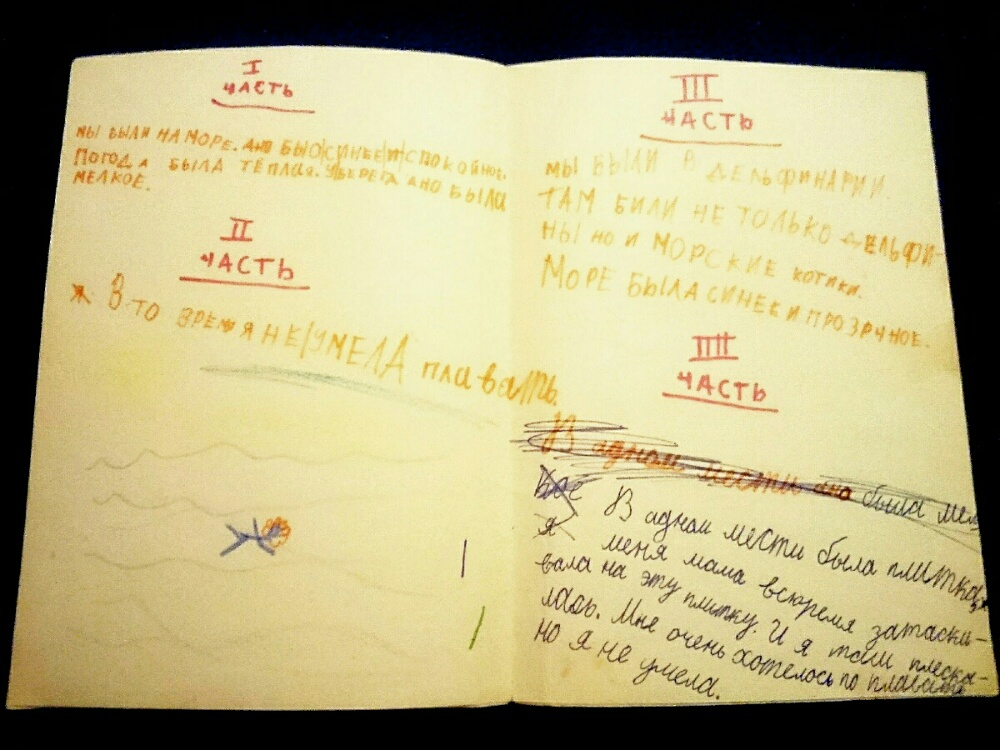 I
ЧАСТЬ
МЫ БЫЛИ НА МОРЕ. АНО БЫО СИНЕЕ И СПОКОЙНОЕ.
ПОГОДА БЫЛА ТЁПЛАЯ. УБЕРЕГА АНО БЫЛА
МЕЛКОЕ.
II
ЧАСТЬ
В ТО ВРЕМЯ НЕ УМЕЛА плавать.
III
ЧАСТЬ
МЫ БЫЛИ В ДЕЛЬФИНАРИИ.
ТАМ БИЛИ НЕ ТОЛЬКО ДЕЛЬФИ-
НЫ но и МОРСКИЕ котики.
МОРЕ БЫЛА СИНЕЕ И ПРОЗРЧНОЕ.
IIII
ЧАСТЬ
В адном мести ано была мел
Всё В адном мести была плитка,
я меня мама всюремя затаски-
вала на эту плитку. И я там плеска-
лась. Мне очень хотелось по плавать
но я не умела.